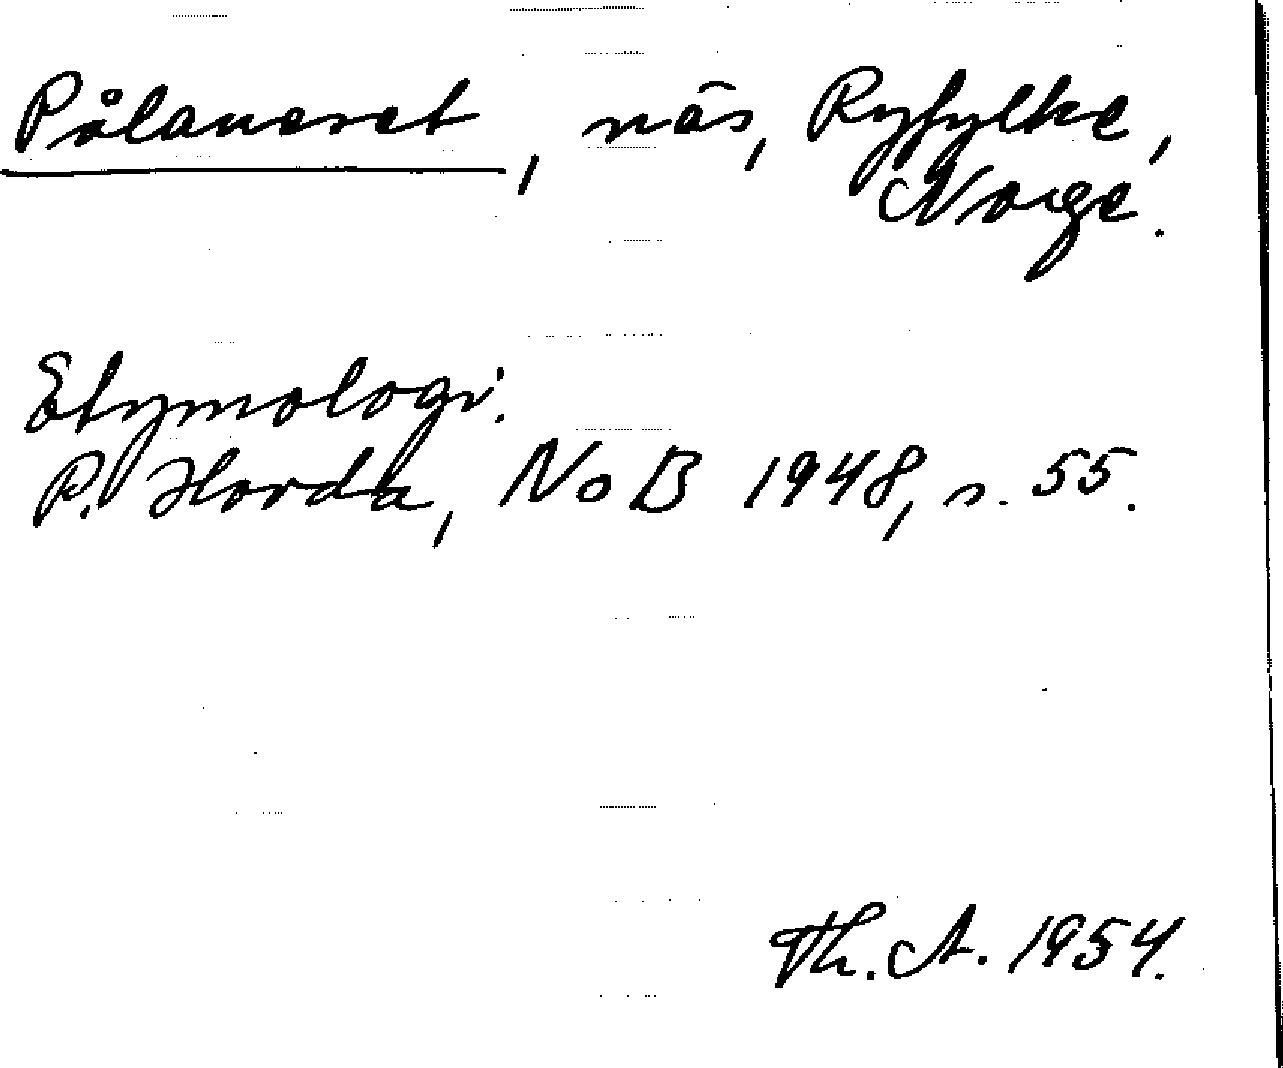 Pålaneset, näs, Ryfylke,
Norge.
Etymologi:
P. Hovda, NoB 1948, s. 55.
Th. A. 1954.